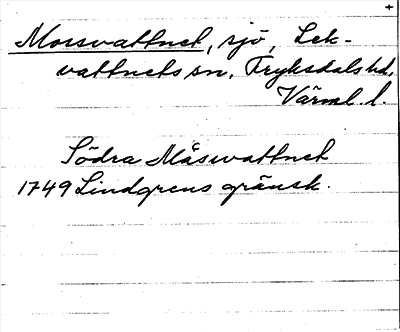 +
Mossvattnet, sjö, Lek-
vattnets sn, Fryksdals hd,
Värml. l.
Södra Måsvattnet
1749 Lindgrens gränsk.